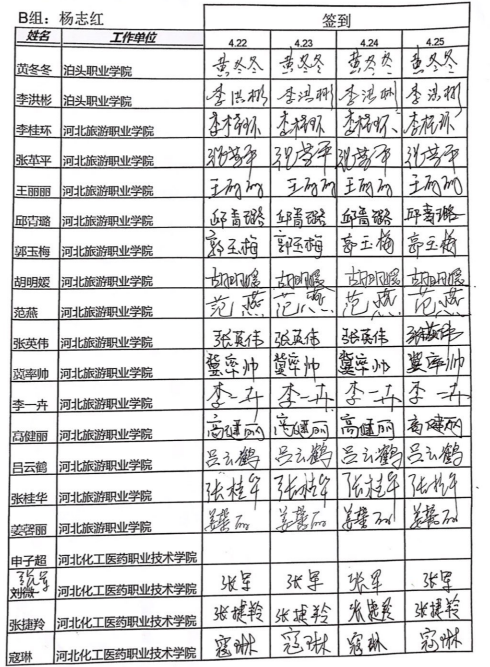 B组：杨志红 签到
姓名 工作单位 4.22 4.23 4.24 4.25
黄冬冬 泊头职业学院 黄冬冬 黄冬冬 黄冬冬 黄冬冬
李洪彬 泊头职业学院 李洪彬 李洪彬 李洪彬 李洪彬
李桂环 河北旅游职业学院 李桂环 李桂环 李桂环 李桂环
张苹平 河北旅游职业学院
王丽丽 河北旅游职业学院 王丽丽 王丽丽 王丽丽 王丽丽
邱青璐 河北旅游职业学院 邱青璐 邱青璐 邱青璐 邱青璐
郭玉梅 河北旅游职业学院 郭玉梅 郭玉梅 郭玉梅 郭玉梅
胡明媛 河北旅游职业学院 胡明媛 胡明媛 胡明媛 胡明媛
范燕 河北旅游职业学院 范燕 范燕 范燕 范燕
张英伟 河北旅游职业学院 张英伟 张英伟 张英伟 张英伟
冀率帅 河北旅游职业学院 冀率帅 冀率帅 冀率帅 冀率帅
李一卉 河北旅游职业学院 李一卉 李一卉 李一卉 李一卉
高健丽 河北旅游职业学院 高健丽 高健丽 高健丽 高健丽
吕云鹤 河北旅游职业学院 吕云鹤 吕云鹤 吕云鹤 吕云鹤
张桂华 河北旅游职业学院 张桂华 张桂华 张桂华 张桂华
姜馨丽 河北旅游职业学院 姜馨丽 姜馨丽 姜馨丽 姜馨丽
申子超 河北化工医药职业技术学院
张军
刘微 河北化工医药职业技术学院 张军 张军 张军 张军
张捷羚 河北化工医药职业技术学院 张捷羚 张捷羚 张捷羚 张捷羚
寇琳 河北化工医药职业技术学院 寇琳 寇琳 寇琳 寇琳